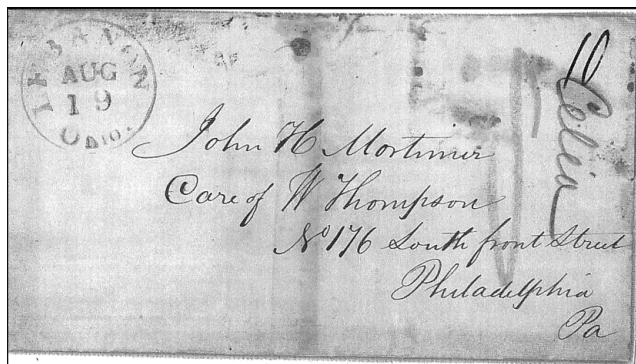 LEBANON
AUG
19
OHIO.
10
Celia
John H Mortimer
Care of W Thompson
No 176 South front Street
Philadelphia
Pa